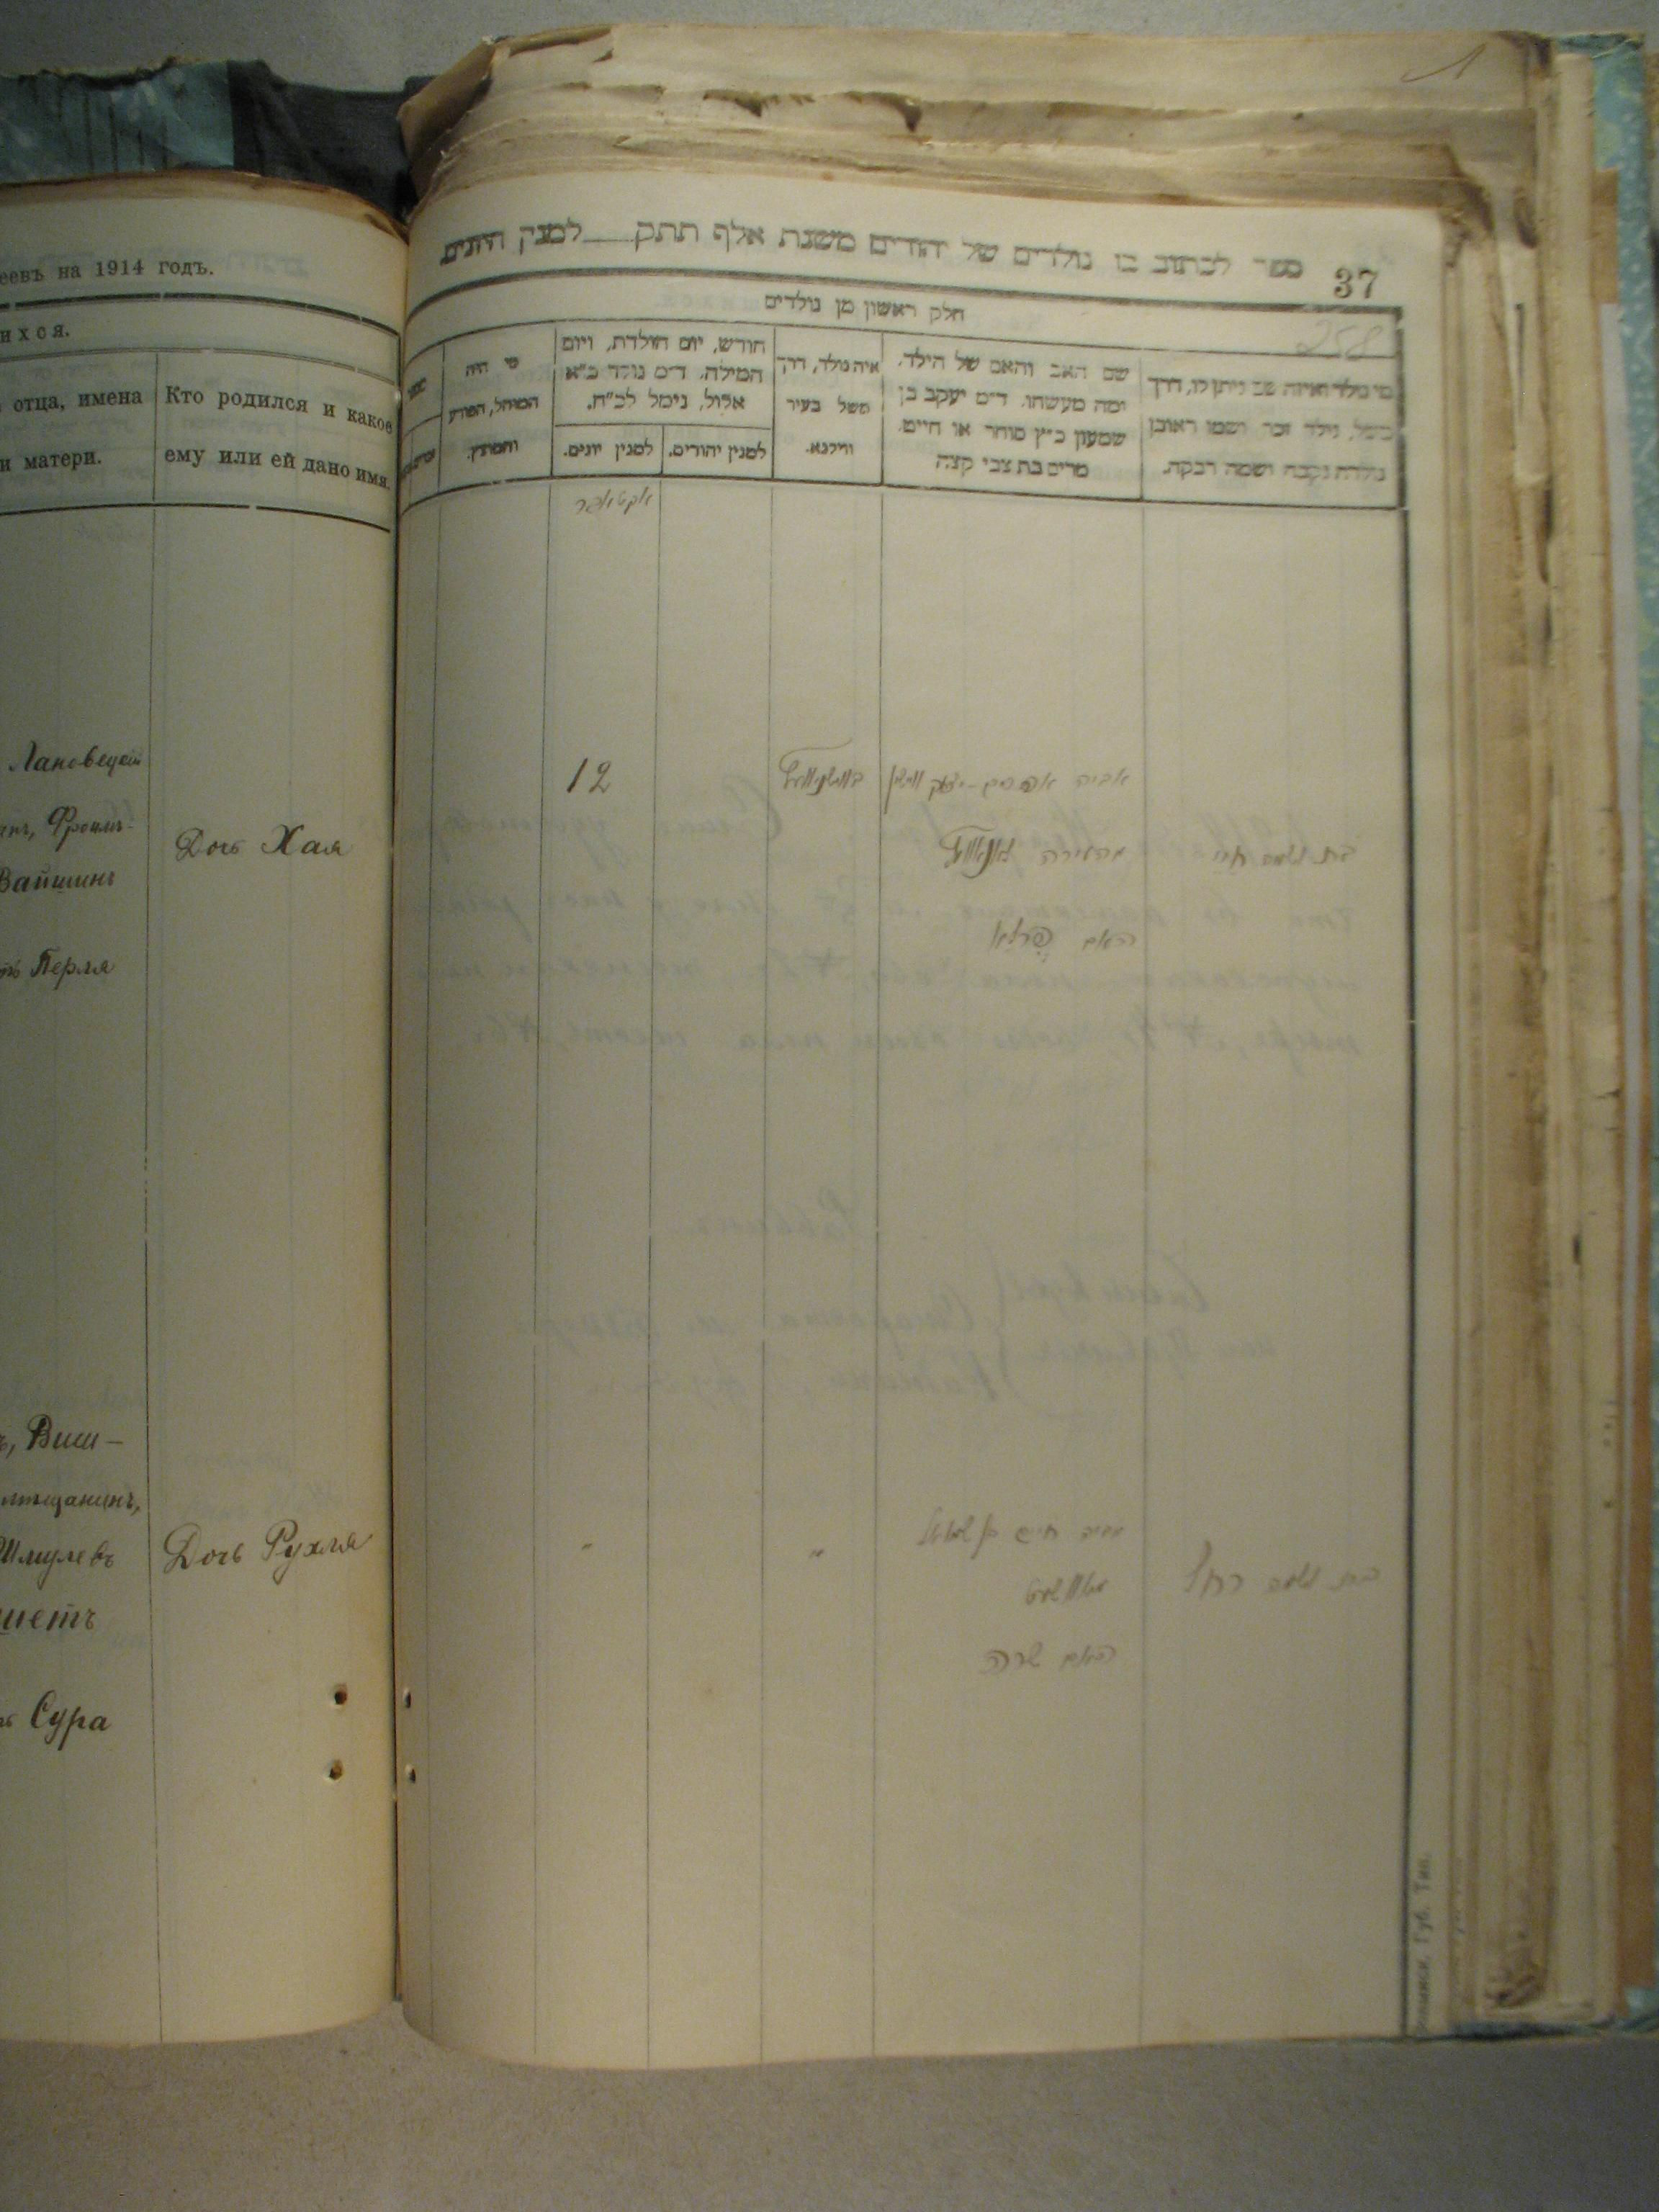 еевъ на 1914 годъ.
ихся.
отца, имена
и матери.
Кто родился и какое
ему или ей дано имя.
Лановецкій
Фроимъ-
Вайшинъ
Перля
Дочь Хая
ъ, Виш-
Шмулевъ
шетъ
Сура
Дочь Рухля
ספר לכתוב בו נולדים של יהודים משנת אלף תתק למנין היונים
37
258
חלק ראשון מן נולדים
מי נולד ואיזה שם ניתן לו, דרך
משל, נולד זכר ושמו ראובן
נולדה נקבה ושמה רבקה.
שם האב והאם של הילד,
ומה מעשהו. ד״מ יעקב בן
שמעון כ״ץ סוחר או חייט.
מרים בת צבי קצה
איה נולד, דרך
משל בעיר
ווילנא.
חודש, יום הולדת, ויום
המילה. ד״מ נולד כ״א
אלול, נימל לכ״ח.
למנין יהודים.
למנין יונים.
מי היה
המוהל, הפורע
והמוצץ.
אקטאבר
12
אביה אפרים-יצחק
מהעירה
האם פערלא
בת ושמה חי׳
אביה חיים בן שמואל
האם שרה
בת ושמה רחל
Губ. Тип.